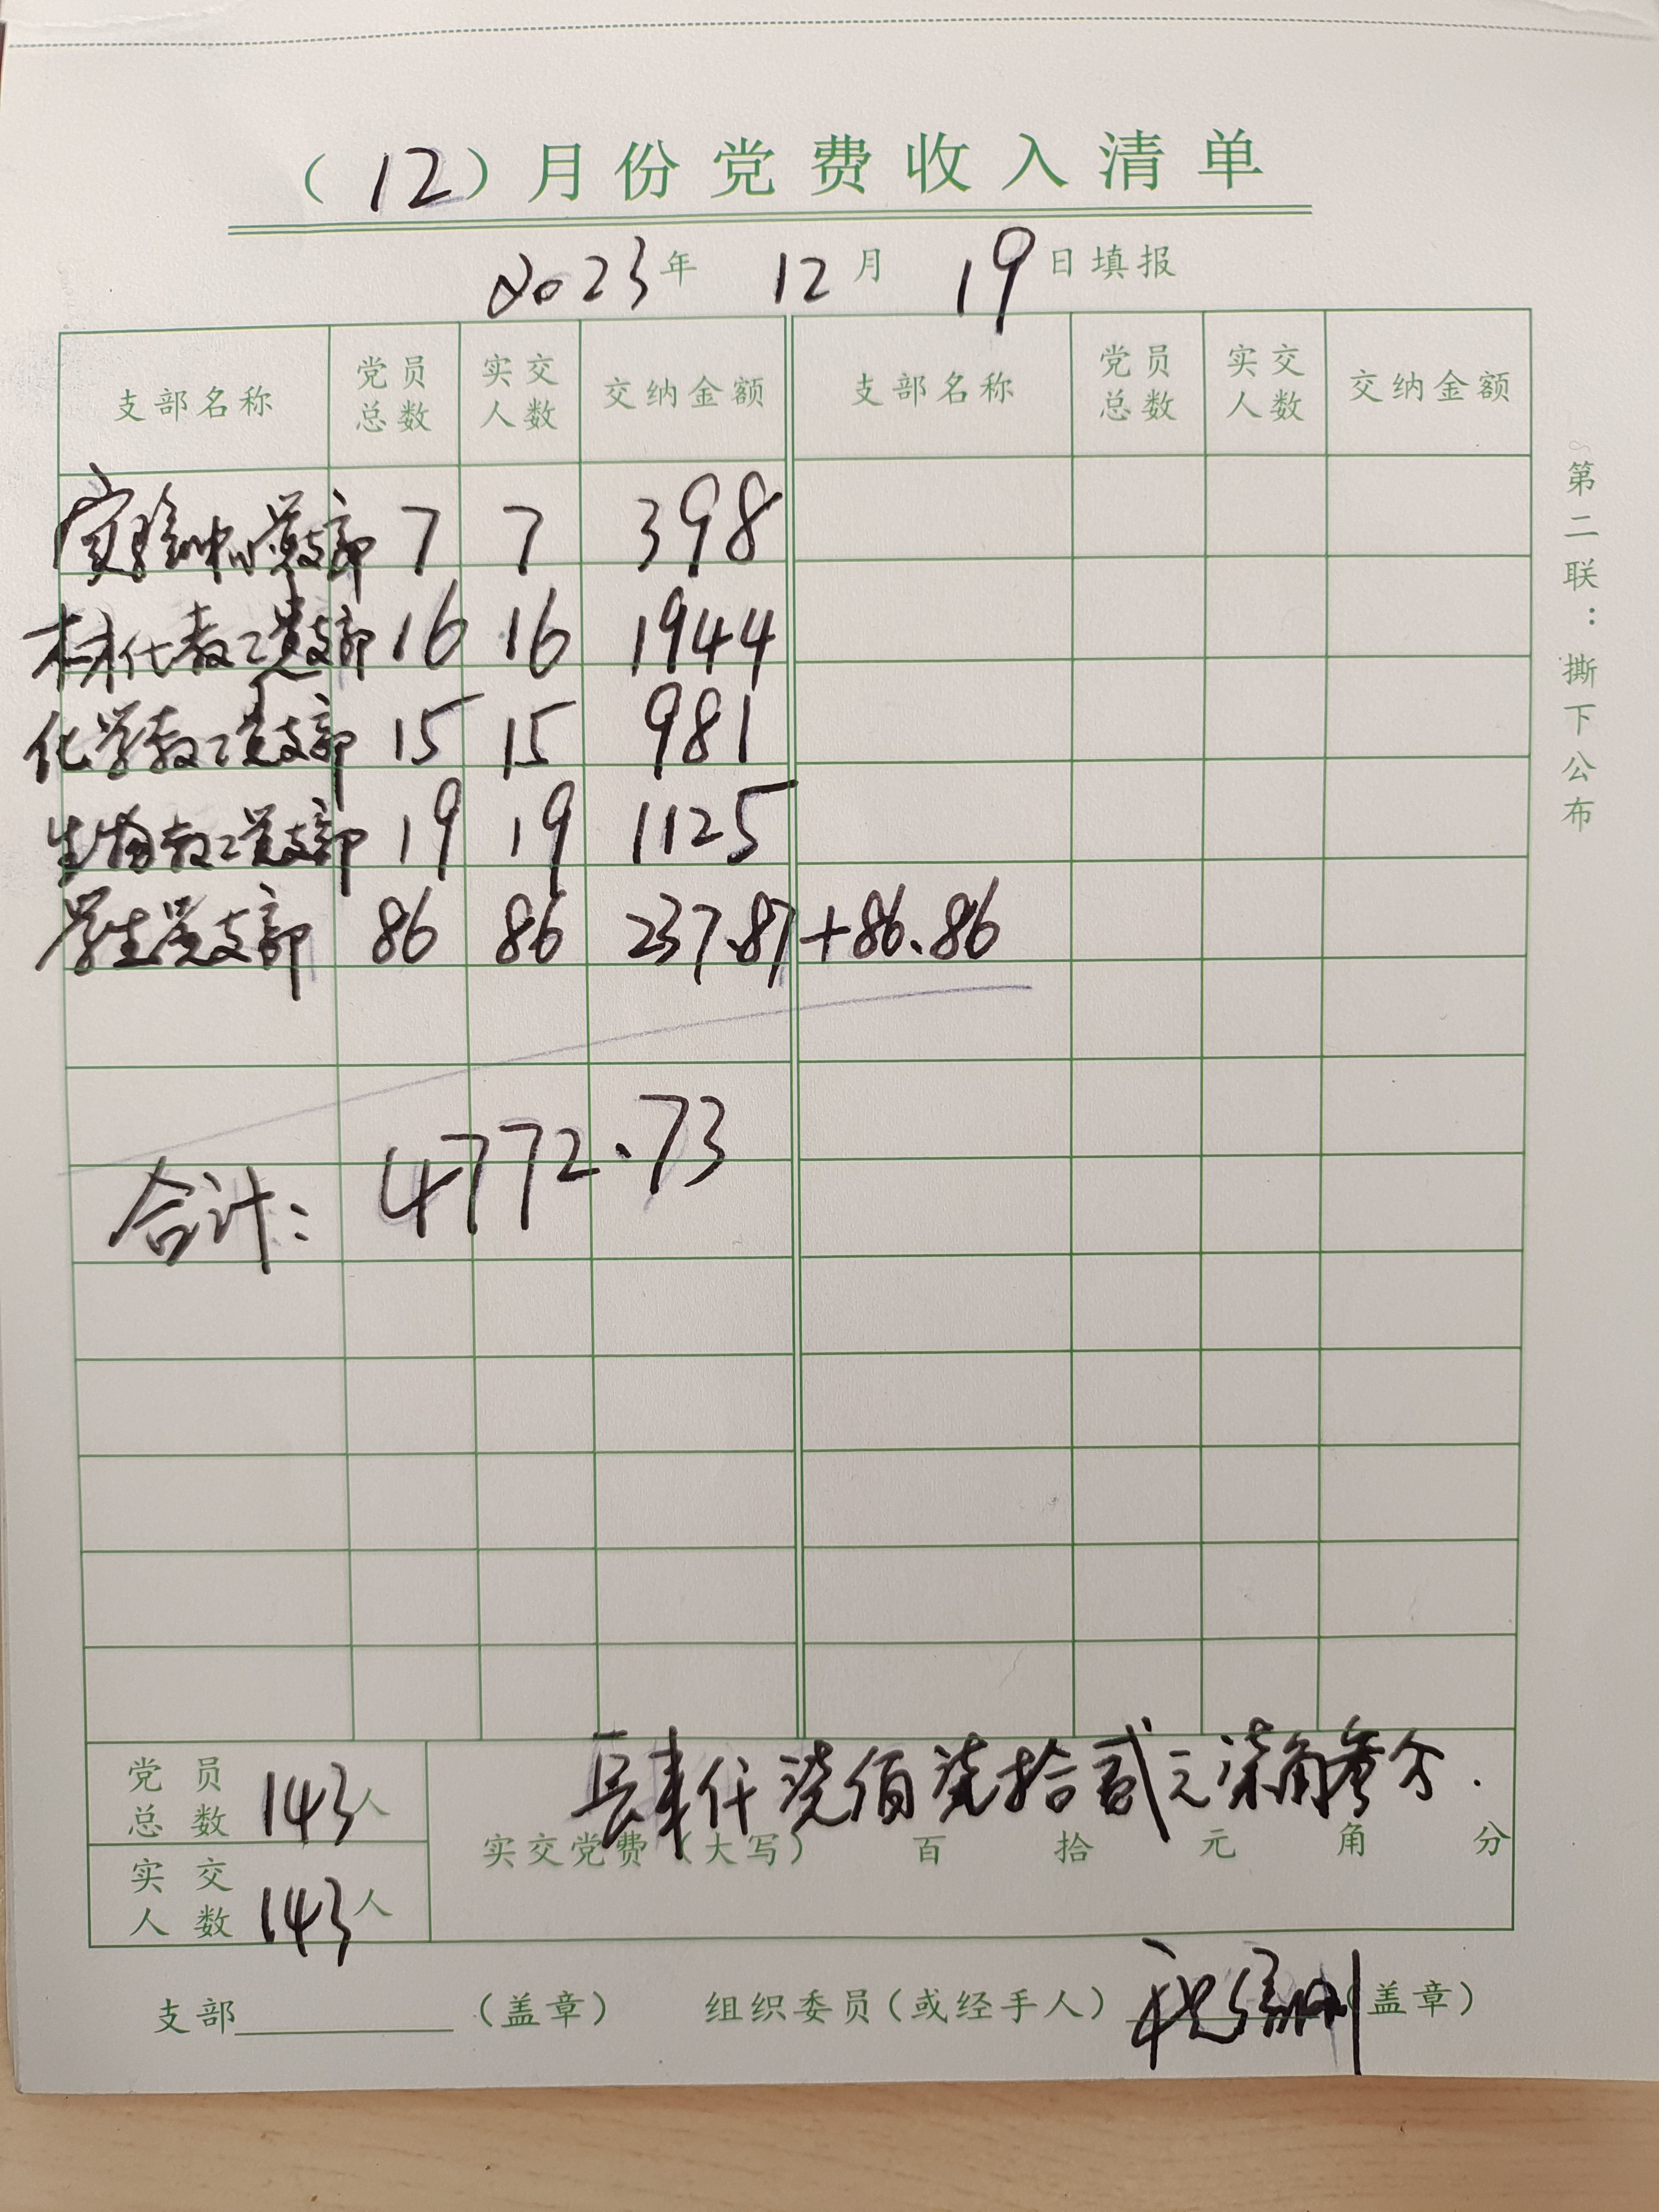 （12）月份党费收入清单
2023年 12月 19日填报
支部名称 党员总数 实交人数 交纳金额 支部名称 党员总数 实交人数 交纳金额
实验中心党支部 7 7 398
材化教工党支部 16 16 1944
化学教工党支部 15 15 981
生物教工党支部 19 19 1125
学生党支部 86 86 237.87+86.86
合计：4772.73
党员总数 143人
肆仟柒佰柒拾贰元柒角叁分.
实交党费（大写） 百 拾 元 角 分
实交人数 143人
支部（盖章） 组织委员（或经手人）（盖章）
第二联：撕下公布